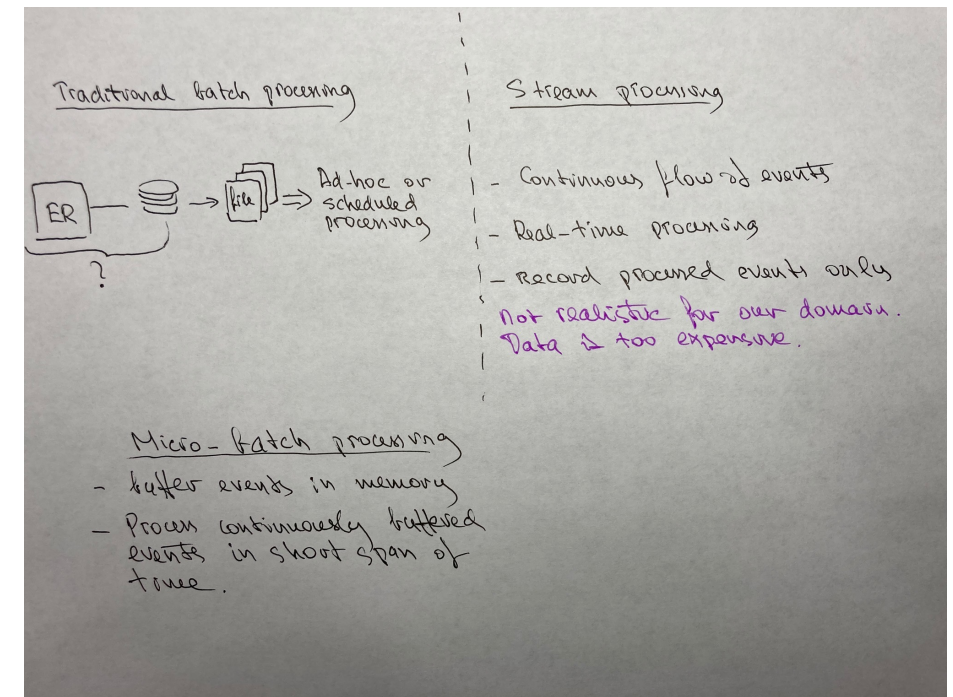 Traditional batch processing
ER
file
Ad-hoc or
scheduled
processing
?
Stream processing
- Continuous flow of events
- Real-time processing
- Record processed events only
Not realistic for our domain.
Data is too expensive.
Micro-batch processing
- buffer events in memory
- Process continuously buffered
events in short span of
time.